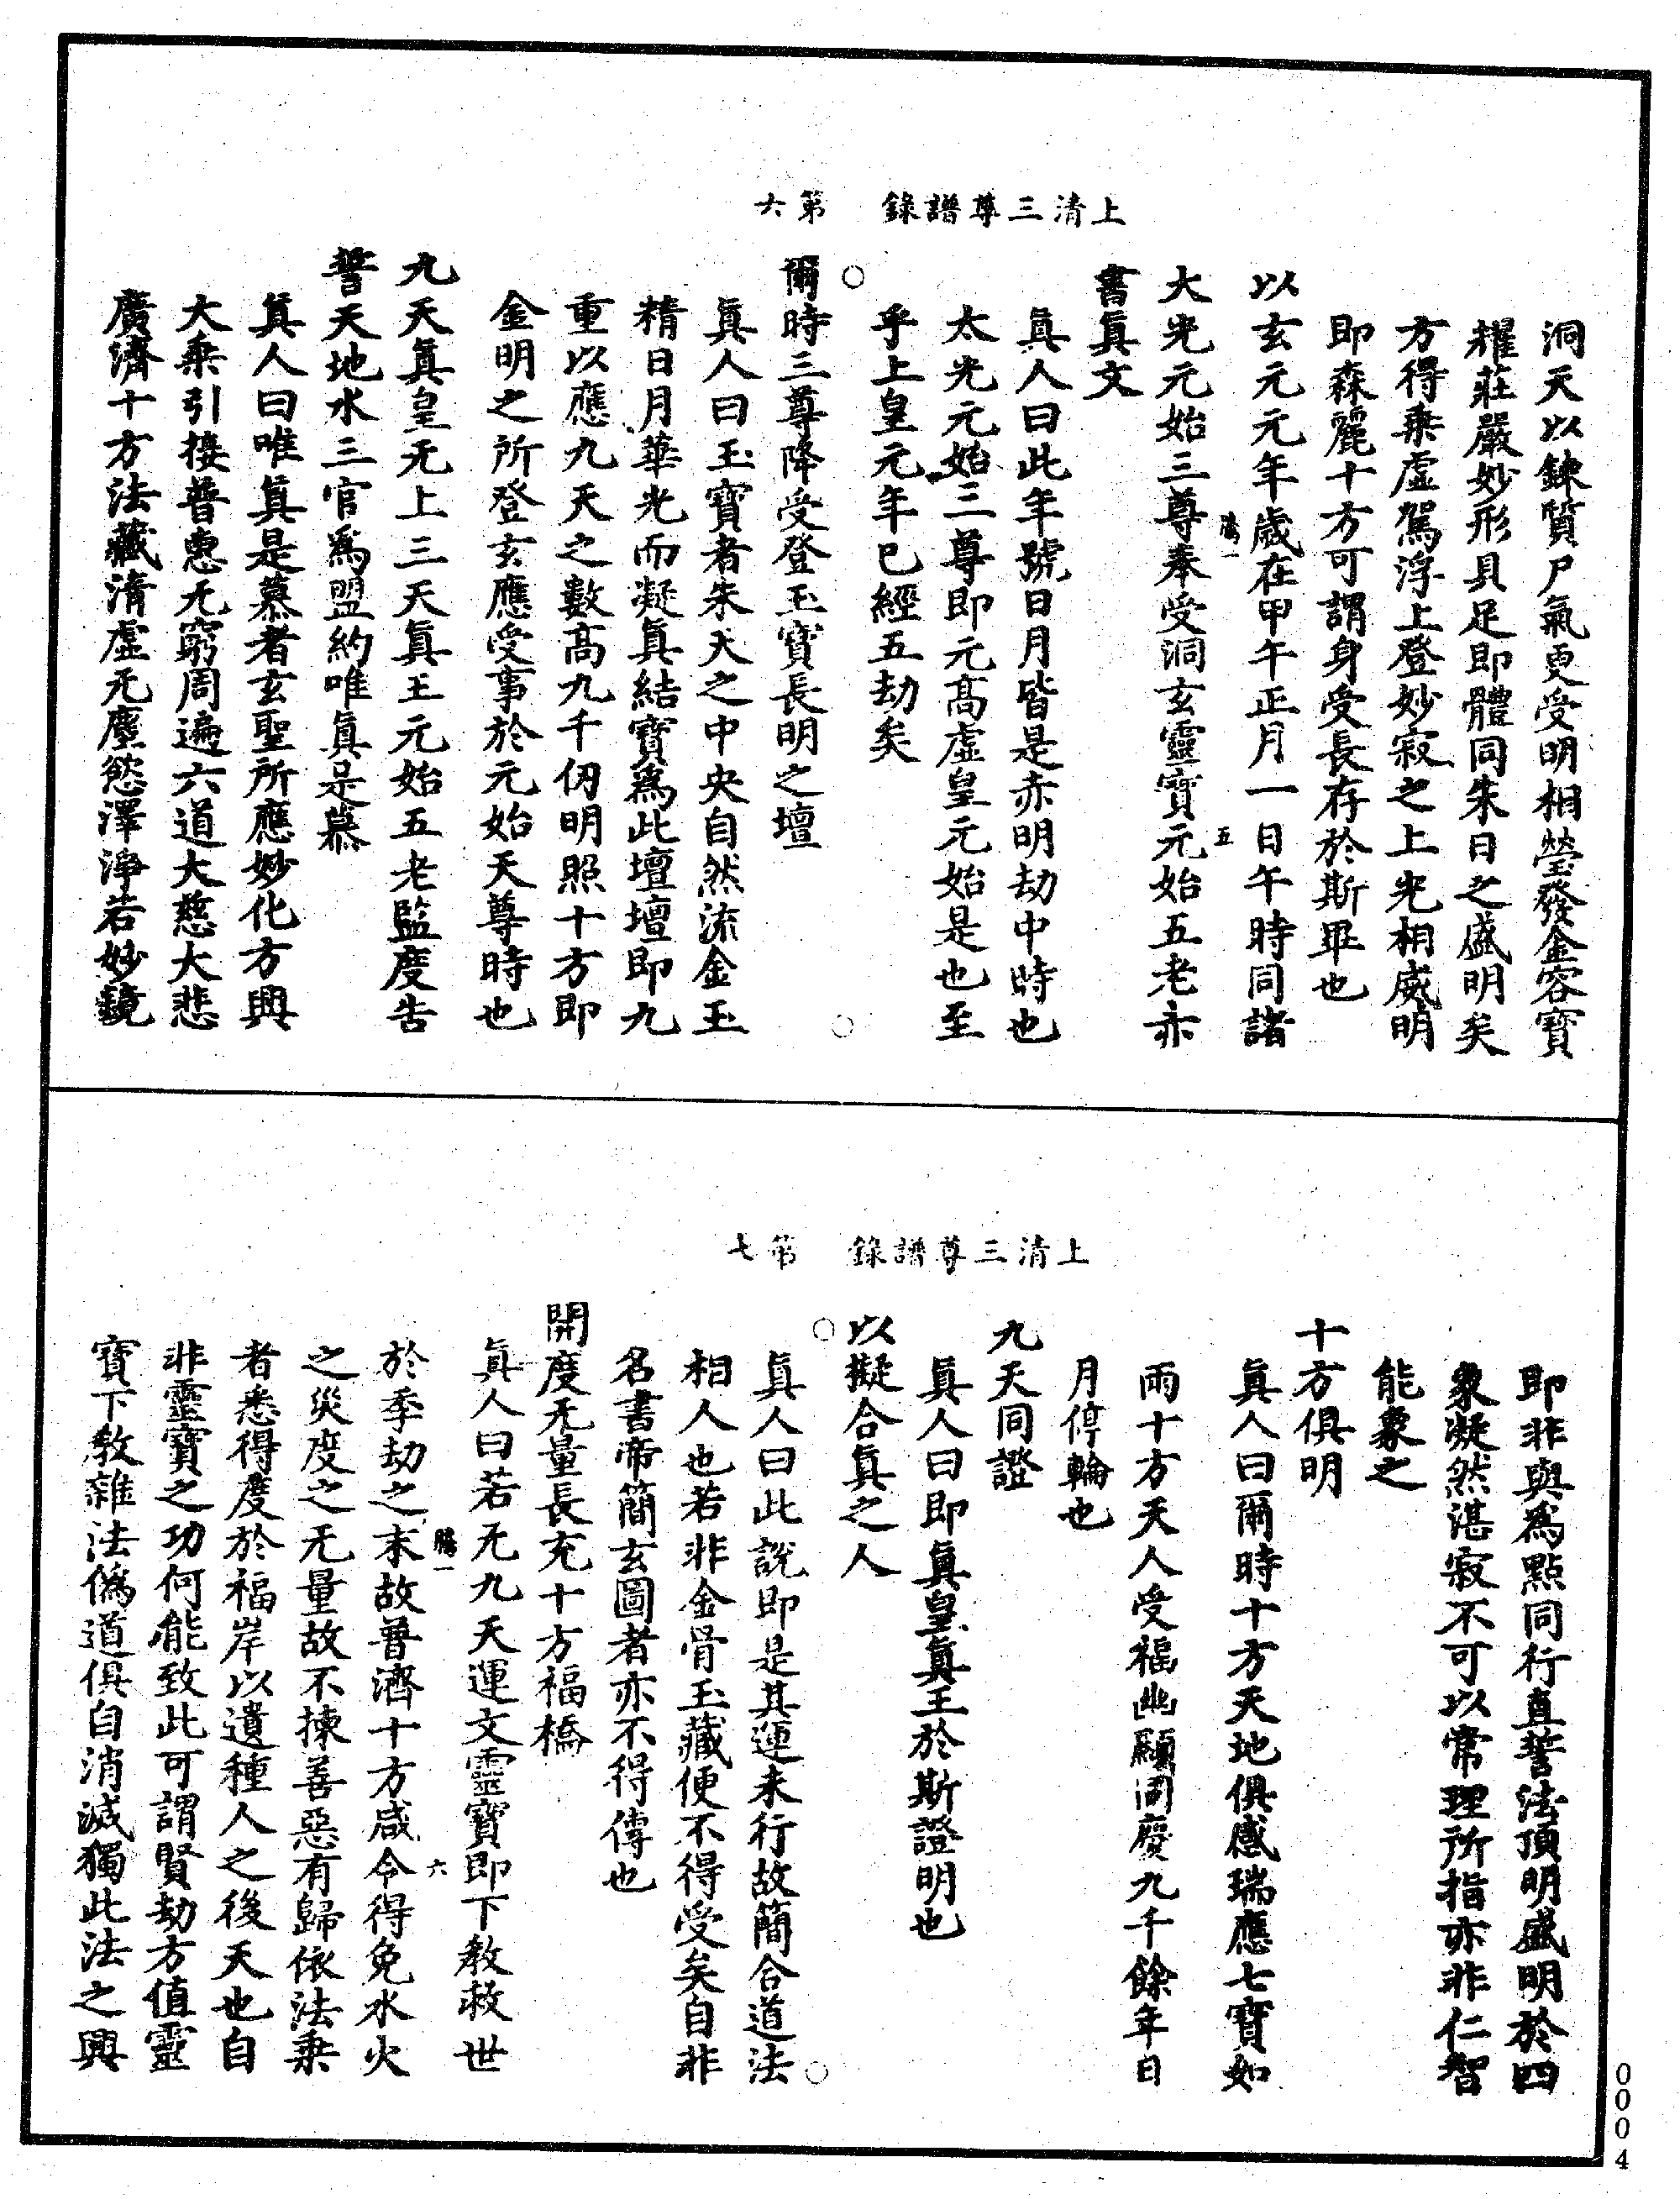 上清三尊譜錄　第六
洞天以鍊質尸氣更受明相瑩發金容寶
耀莊嚴妙形具足即體同朱日之盛明矣
方得乗虛駕浮上登妙寂之上光相威明
即森麗十方可謂身受長存於斯畢也
以玄元元年歲在甲午正月一日午時同諸
五
大光元始三尊奉受洞玄靈寶元始五老赤
書眞文
眞人曰此年號日月皆是赤明劫中時也
太光元始三尊即元髙虛皇元始是也至
乎上皇元年已經五劫矣
爾時三尊降受登玉寳長明之壇
眞人曰玉寶者朱天之中央自然流金玉
精日月華光而凝眞結寶爲此壇壇即九
重以應九天之數髙九千仞明照十方即
金明之所登玄應受事於元始天尊時也
九天眞皇无上三天眞王元始五老監度告
誓天地水三官爲盟約唯眞是慕
眞人曰唯眞是慕者玄聖所應妙化方興
大乗引接普惠无窮周遍六道大慈大悲
廣濟十方法藏清虛无塵慾澤淨若妙鏡
上清三尊譜錄　第七
即非與爲點同行直誓法頂明盛明於四
象凝然湛寂不可以常理所指亦非仁智
能象之
十方俱明
眞人曰爾時十方天地俱感瑞應七寶如
雨十方天人受福幽顯同慶九千餘年日
月停輪也
九天同證
眞人曰即眞皇眞王於斯證明也
以擬合眞之人
眞人曰此説即是其運未行故簡合道法
相人也若非金骨玉藏便不得受矣自非
名書帝簡玄圖者亦不得傳也
開度无量長充十方福橋
眞人曰若无九天運文靈寶即下教救世
六
於季劫之末故普濟十方咸令得免水火
之災度之无量故不揀善惡有歸依法乗
者悉得度於福岸以遺種人之後天也自
非靈寶之功何能致此可謂賢劫方值靈
寶下教雜法僞道俱自消滅獨此法之興
0004